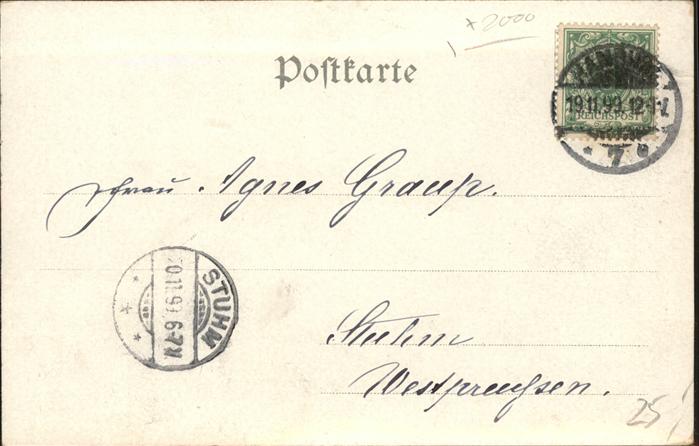 * 2000
Postkarte
HAMBURG
19.11.99. 12-1
REICHSPOST
* 7
Frau Agnes Graup.
STUHM
11.99 6-7N
Stuhm
Westpreußen.
25